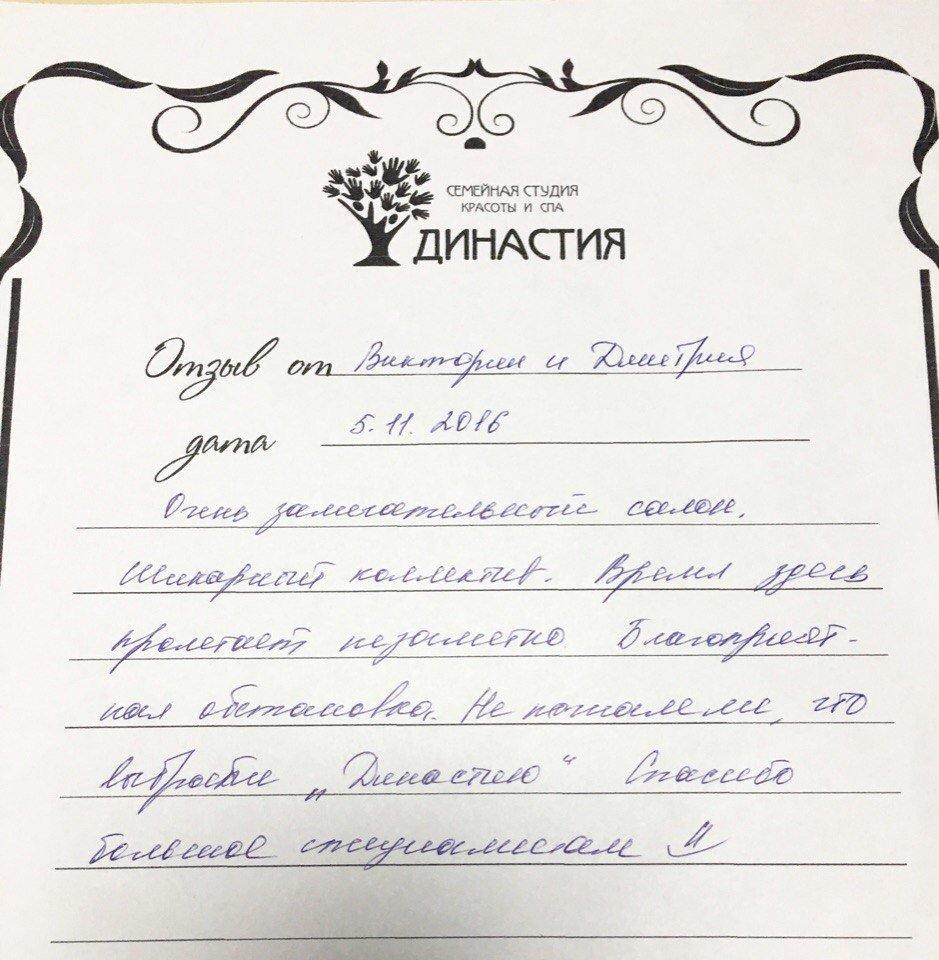 СЕМЕЙНАЯ СТУДИЯ
КРАСОТЫ И СПА
ДИНАСТИЯ
Отзыв от Виктории и Дмитрия
дата 5.11.2016
Очень замечательный салон.
Шикарный коллектив. Время здесь
пролетает незаметно. Благоприят-
ная обстановка. Не пожалели, что
выбрали „Династию“ Спасибо
большое специалистам